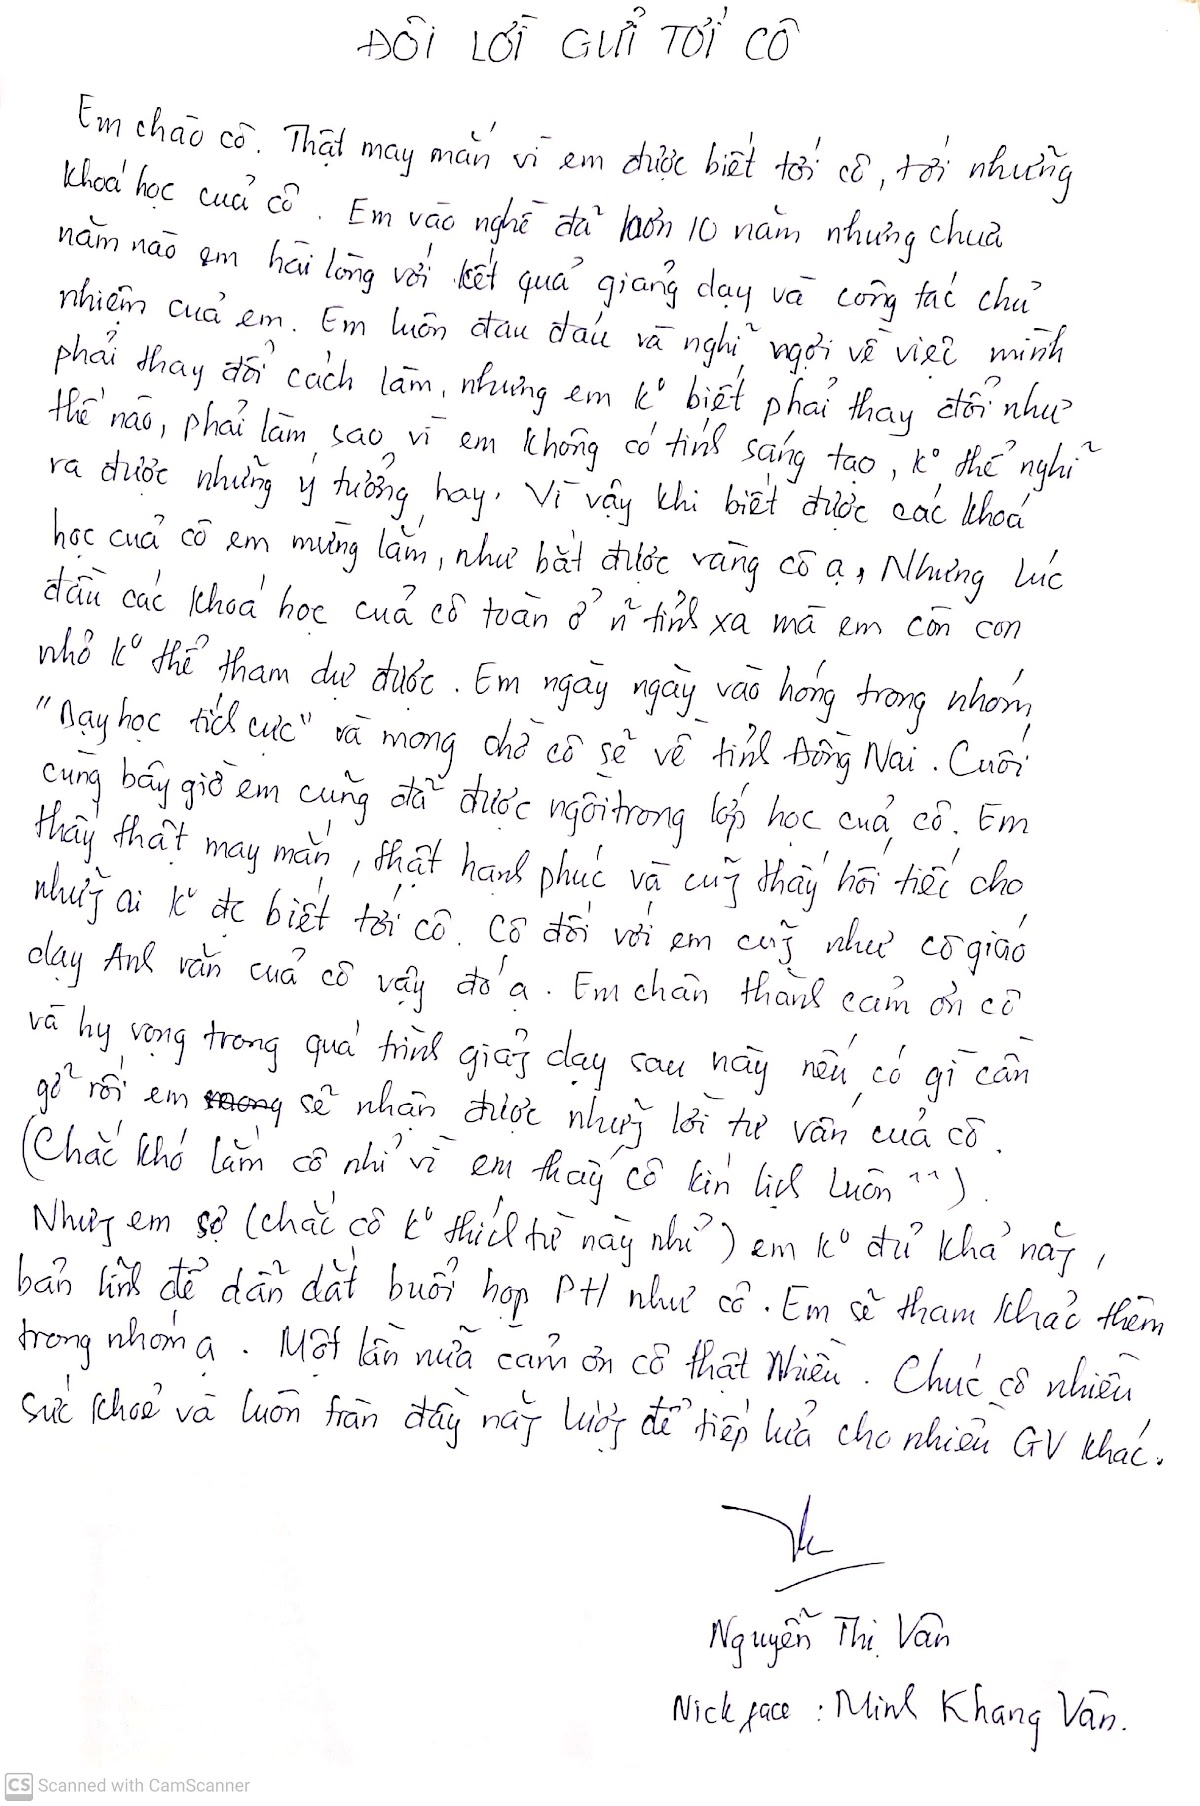 ĐÔI LỜI GỬI TỚI CÔ
Em chào cô. Thật may mắn vì em được biết tới cô, tới những
khoá học cuả cô. Em vào nghề đã hơn 10 năm nhưng chưa
năm nào em hài lòng với kết quả giảng dạy và công tác chủ
nhiệm cuả em. Em luôn đau đáu và nghĩ ngợi về việc mình
phải thay đổi cách làm, nhưng em k° biết phải thay đổi như
thế nào, phải làm sao vì em không có tính sáng tạo, k° thể nghĩ
ra được những ý tưởng hay. Vì vậy khi biết được các khoá
học cuả cô em mừng lắm, như bắt được vàng cô ạ, Nhưng lúc
đầu các khoá học cuả cô toàn ở ñ tỉnh xa mà em còn con
nhỏ k° thể tham dự được. Em ngày ngày vào hóng trong nhóm
"Dạy học tích cực" và mong chờ cô sẽ về tỉnh Đồng Nai. Cuối
cùng bây giờ em cũng đã được ngồi trong lớp học cuả cô. Em
thấy thật may mắn, thật hạnh phúc và cũg thấy hối tiếc cho
nhữg ai k° đc biết tới cô. Cô đối với em cũg như cô giáo
dạy Anh văn cuả cô vậy đó ạ. Em chân thành cảm ơn cô
và hy vọng trong quá trình giảg dạy sau này nếu có gì cần
gỡ rối em mong sẽ nhận được nhữg lời tư vấn cuả cô.
(Chắc khó lắm cô nhỉ vì em thấy cô kín lịch luôn ^^).
Nhưg em sợ (chắc cô k° thích từ này nhỉ) em k° đủ khả năg,
bản lĩnh để dẫn dắt buổi họp PH như cô. Em sẽ tham khảo thêm
trong nhóm ạ. Một lần nữa cảm ơn cô thật nhiều. Chúc cô nhiều
sức khoẻ và luôn tràn đầy năg lượg để tiếp lửa cho nhiều GV khác.
Nguyễn Thị Vân
Nick face : Minh Khang Vân.
CS Scanned with CamScanner